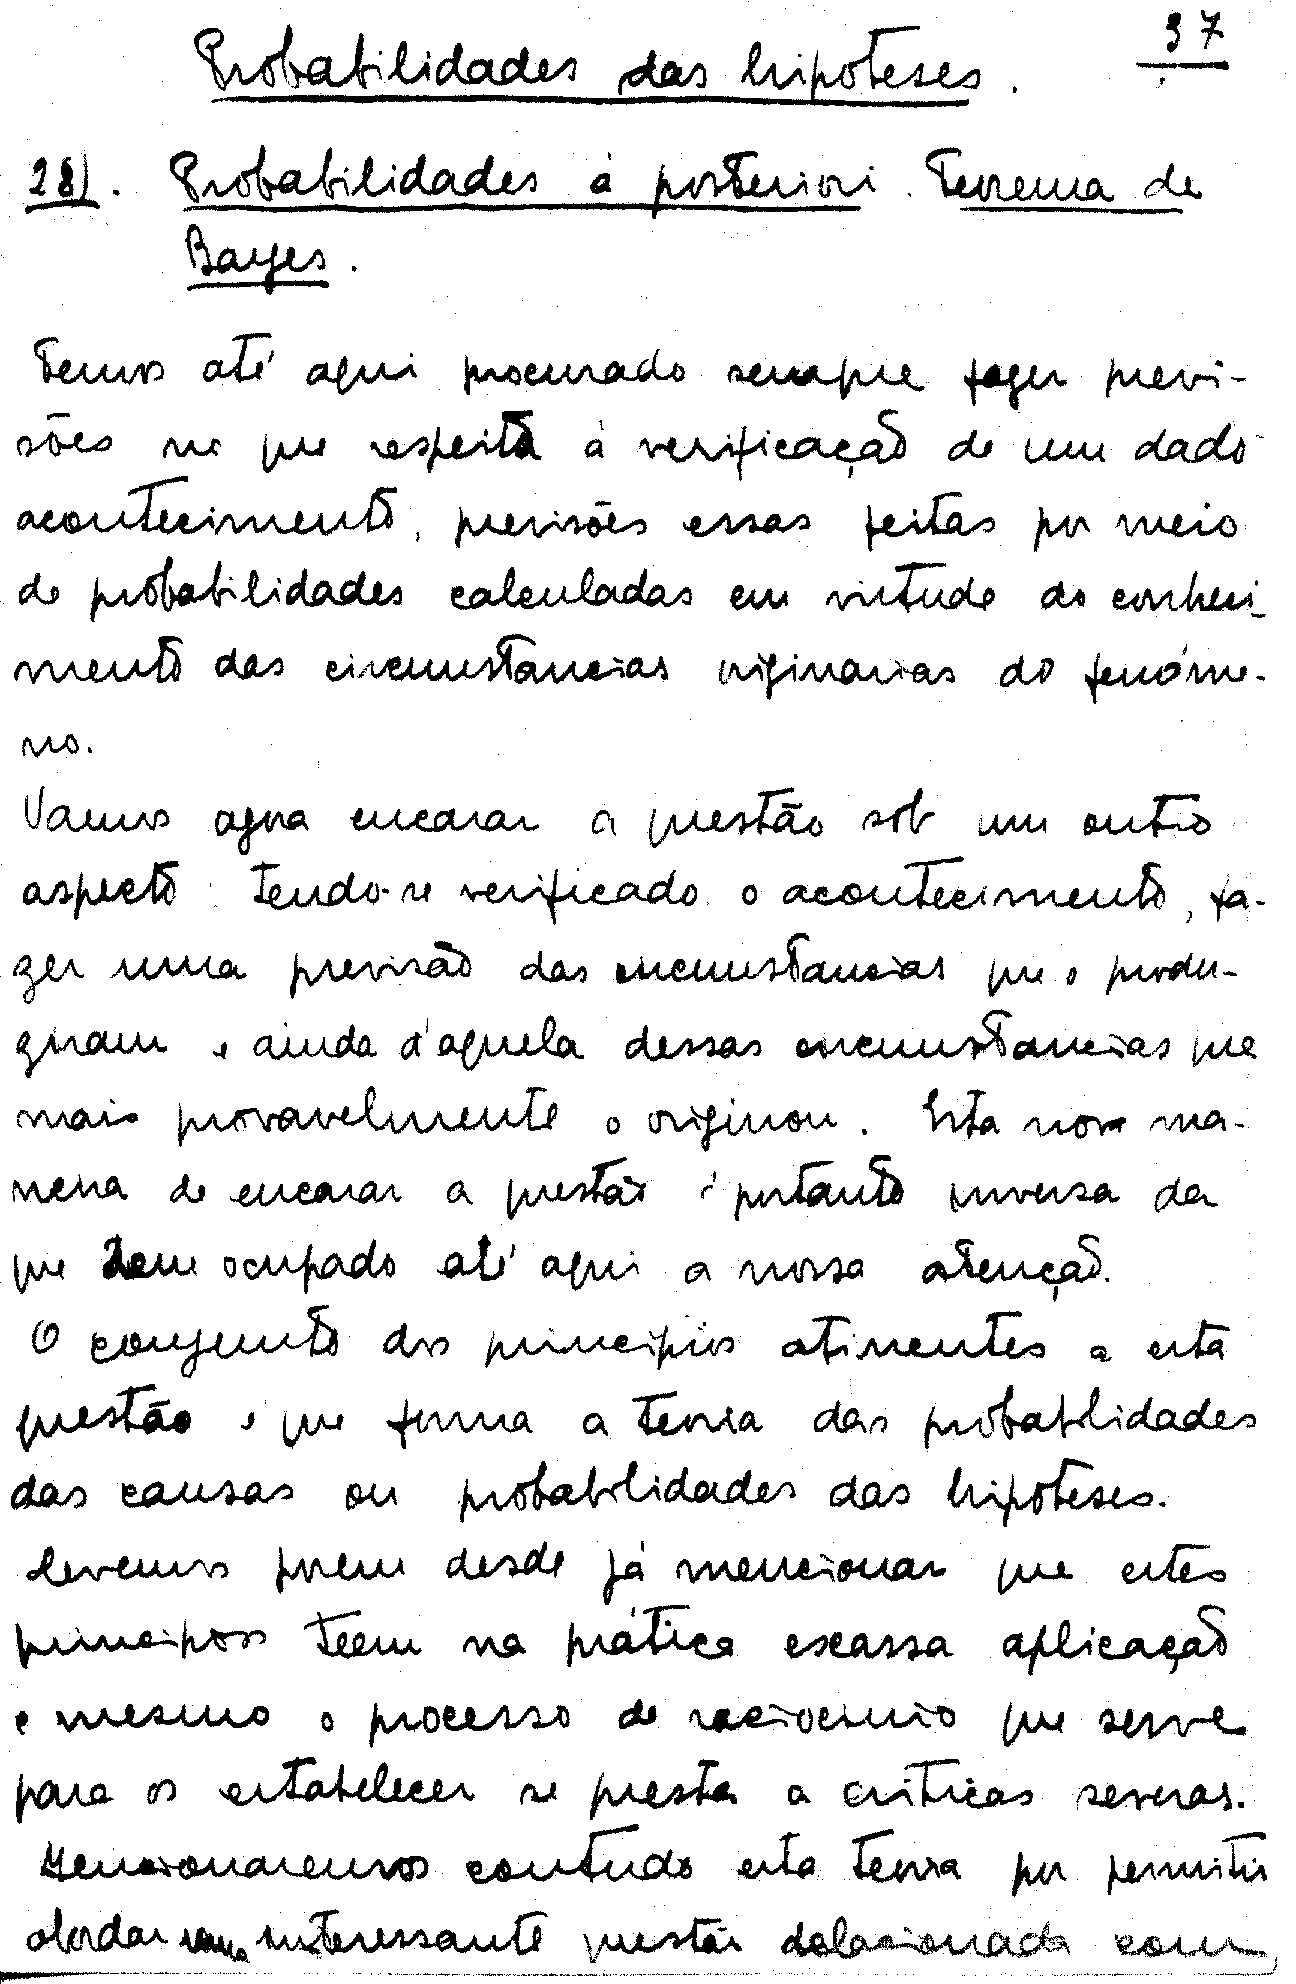 37
Probabilidades das hipoteses.
28). Probabilidades à posteriori. Teorema de
Bayes.
Temos até aqui procurado sempre fazer previ-
sões no que respeita à verificação de um dado
acontecimento, previsões essas feitas por meio
de probabilidades calculadas em virtude do conheci-
mento das circumstancias originarias do fenóme-
no.
Vamos agora encarar a questão sob um outro
aspecto: Tendo-se verificado o acontecimento, fa-
zer uma previsão das circumstancias que o produ-
ziram e ainda d'aquela dessas circumstancias que
mais provavelmente o originou. Esta nova ma-
neira de encarar a questão é portanto inversa da
que tem ocupado até aqui a nossa atenção.
O conjunto dos principios atinentes a esta
questão e que forma a teoria das probabilidades
das causas ou probabilidades das hipoteses.
Devemos porem desde já mencionar que estes
principios teem na prática escassa aplicação
e mesmo o processo de raciocinio que serve
para os estabelecer se presta a criticas severas.
Mencionaremos contudo esta teoria por permitir
abordar uma interessante questão relacionada com